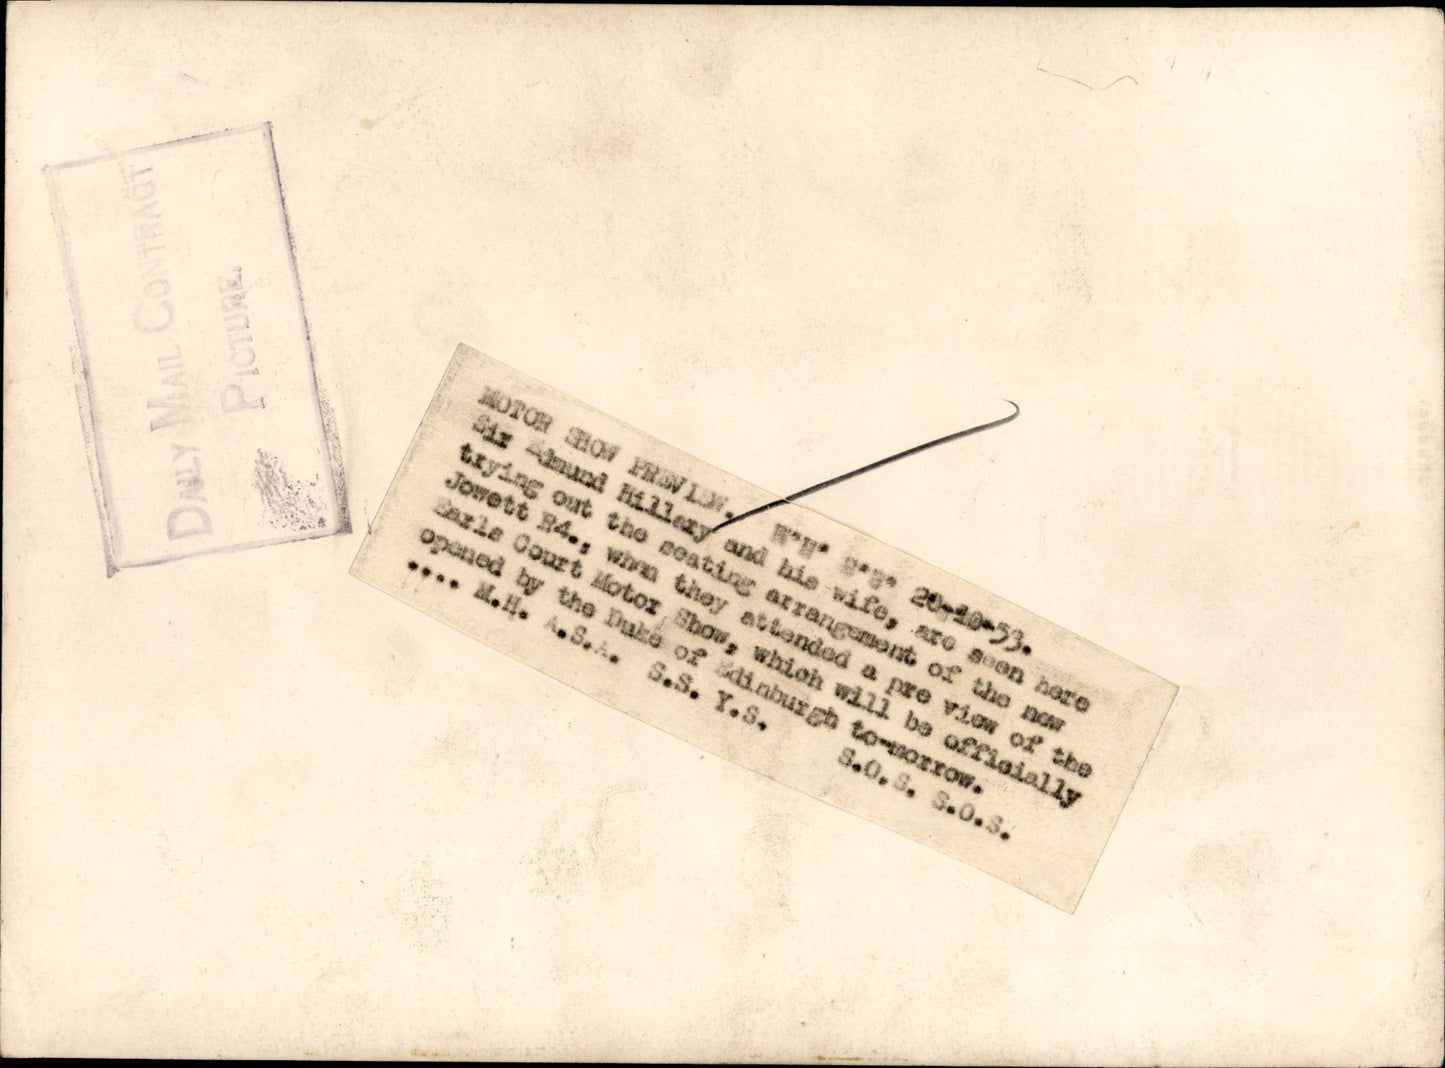 DAILY MAIL CONTRACT
PICTURE.
MOTOR SHOW PREVIEW. 20-10-53.
Sir Edmund Hillary and his wife, are seen here
trying out the seating arrangement of the new
Jowett R4., when they attended a pre view of the
Earls Court Motor Show, which will be officially
opened by the Duke of Edinburgh to-morrow.
.... M.H. A.S.A. S.S. Y.S. S.O.S. S.O.S.